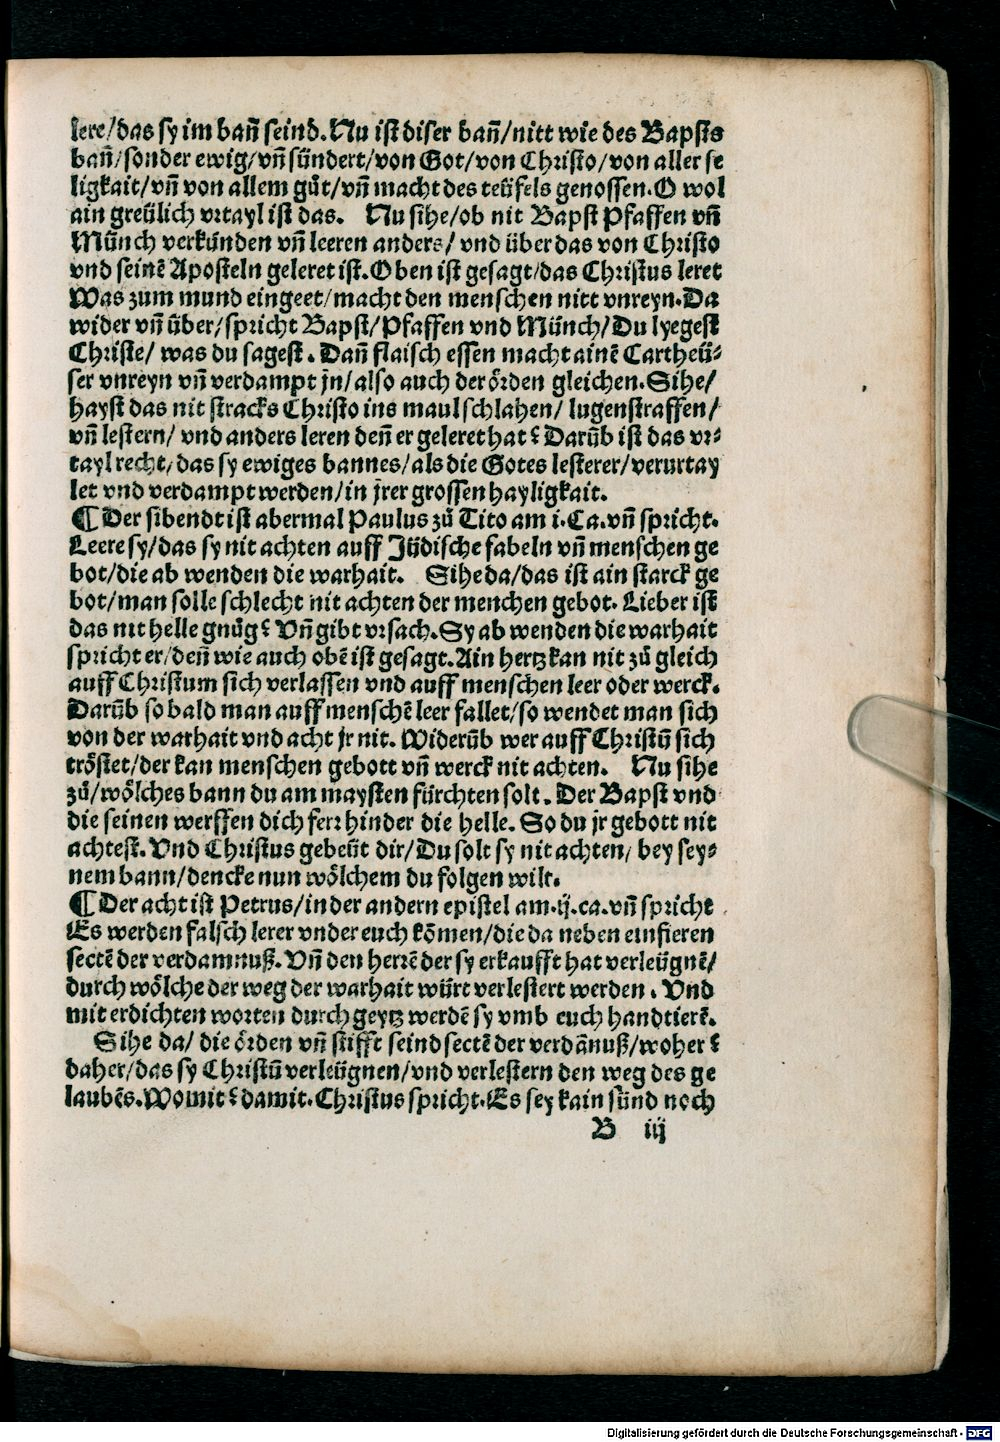 lere/das sy im bañ seind. Nu ist diser bañ/nitt wie des Bapsts
bañ/sonder ewig/vñ sündert/von Got/von Christo/von aller se
ligkait/vñ von allem gůt/vñ macht des teüfels genossen. O wol
ain greülich vrtayl ist das. Nu sihe/ob nit Bapst Pfaffen vñ
Münch verkünden vñ leeren anders/ vnd über das von Christo
vnd seinē Aposteln geleret ist. Oben ist gesagt/das Christus leret
Was zum mund eingeet/macht den menschen nitt vnreyn. Da
wider vñ über/spricht Bapst/Pfaffen vnd Münch/Du lyegest
Christe/ was du sagest. Dañ flaisch essen macht ainē Cartheü⸗
ser vnreyn vñ verdampt jn/also auch der örden gleichen. Sihe/
hayst das nit stracks Christo ins maul schlahen/ lugenstraffen/
vñ lestern/ vnd anders leren deñ er geleret hat? Darūb ist das vr⸗
tayl recht/das sy ewiges bannes/als die Gotes lesterer/verurtay
let vnd verdampt werden/in jrer grossen hayligkait.
¶ Der sibendt ist abermal Paulus zů Tito am i. Ca. vñ spricht.
Leere sy/das sy nit achten auff Jüdische fabeln vñ menschen ge
bot/die ab wenden die warhait. Sihe da/das ist ain starck ge
bot/man solle schlecht nit achten der menchen gebot. Lieber ist
das nit helle gnůg? Vñ gibt vrsach. Sy ab wenden die warhait
spricht er/deñ wie auch obē ist gesagt. Ain hertz kan nit zů gleich
auff Christum sich verlassen vnd auff menschen leer oder werck.
Darūb so bald man auff menschē leer fallet/so wendet man sich
von der warhait vnd acht jr nit. Widerūb wer auff Christū sich
tröstet/der kan menschen gebott vñ werck nit achten. Nu sihe
zů/wölches bann du am maysten fürchten solt. Der Bapst vnd
die seinen werffen dich ferr hinder die helle. So du jr gebott nit
achtest. Vnd Christus gebeüt dir/Du solt sy nit achten/ bey sey⸗
nem bann/dencke nun wölchem du folgen wilt.
¶ Der acht ist Petrus/in der andern epistel am. ij. ca. vñ spricht
Es werden falsch lerer vnder euch kōmen/die da neben einfieren
sectē der verdamnuß. Vñ den herrē der sy erkaufft hat verleügnē/
durch wölche der weg der warhait würt verlestert werden. Vnd
mit erdichten worten durch geytz werdē sy vmb euch handtierē.
Sihe da/ die örden vñ stifft seind sectē der verdānuß/woher?
daher/das sy Christū verleügnen/vnd verlestern den weg des ge
laubēs. Womit? damit. Christus spricht. Es sey kain sünd noch
B iij
Digitalisierung gefördert durch die Deutsche Forschungsgemeinschaft - DFG